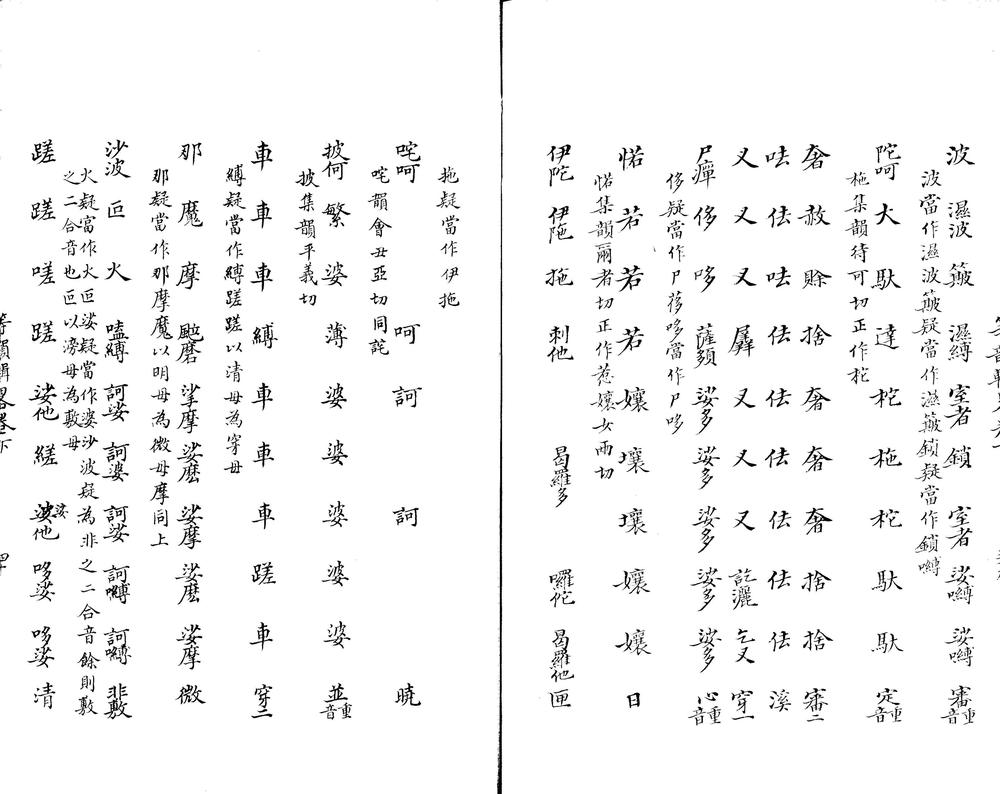 波 濕波 簸 濕縛 室者 鎖 室者 娑嚩 娑嚩 審重音
波當作濕波簸疑當作濕簸鎖疑當作鎖嚩
陀呵 大 馱 達 柁 柂 柁 馱 馱 定重音
柂集韻待可切正作柁
奢 赦 賒 捨 奢 奢 奢 捨 捨 審二
呿 佉 呿 佉 佉 佉 佉 佉 佉 溪
叉 叉 叉 羼 叉 叉 叉 訖灑 乞叉 穿一
尸癉 侈 哆 薩頦 娑多 娑多 娑多 娑多 娑多 心重音
侈疑當作尸侈哆當作尸哆
惹 若 若 若 孃 壤 壤 孃 孃 日
惹集韻爾者切正作惹孃女兩切
伊陀 伊陁 拖 刺他 曷羅多 囉佗 曷羅他 匣
拖疑當作伊拖
咤呵 呵 訶 訶 曉
咤韻會丑亞切同詫
披何 繁 婆 薄 婆 婆 婆 婆 婆 並重音
披集韻平義切
車 車 車 縛 車 車 車 蹉 車 穿二
縛疑當作縛蹉蹉以清母為穿母
那 魔 摩 颩磨 挲摩 娑麽 娑摩 娑麽 娑摩 微
那疑當作那摩魔以明母為微母摩同上
沙波 叵 火 嗑縛 訶娑 訶婆 訶娑 訶嚩 訶嚩 非敷
火疑當作火叵娑疑當作婆沙波疑為非之二合音餘則敷
之二合音也叵以滂母為敷母
蹉 蹉 嗟 蹉 娑他 縒 娑他 哆娑 哆娑 清